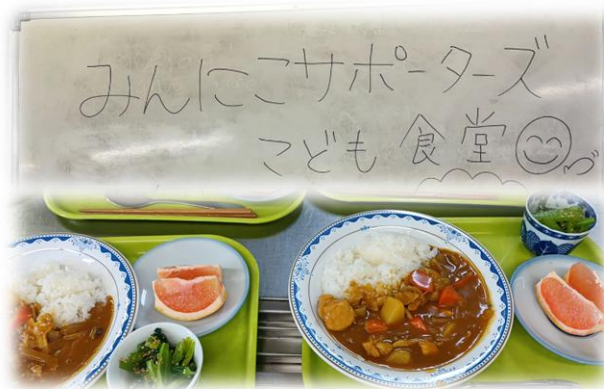 みんにこサポーターズ
こども食堂